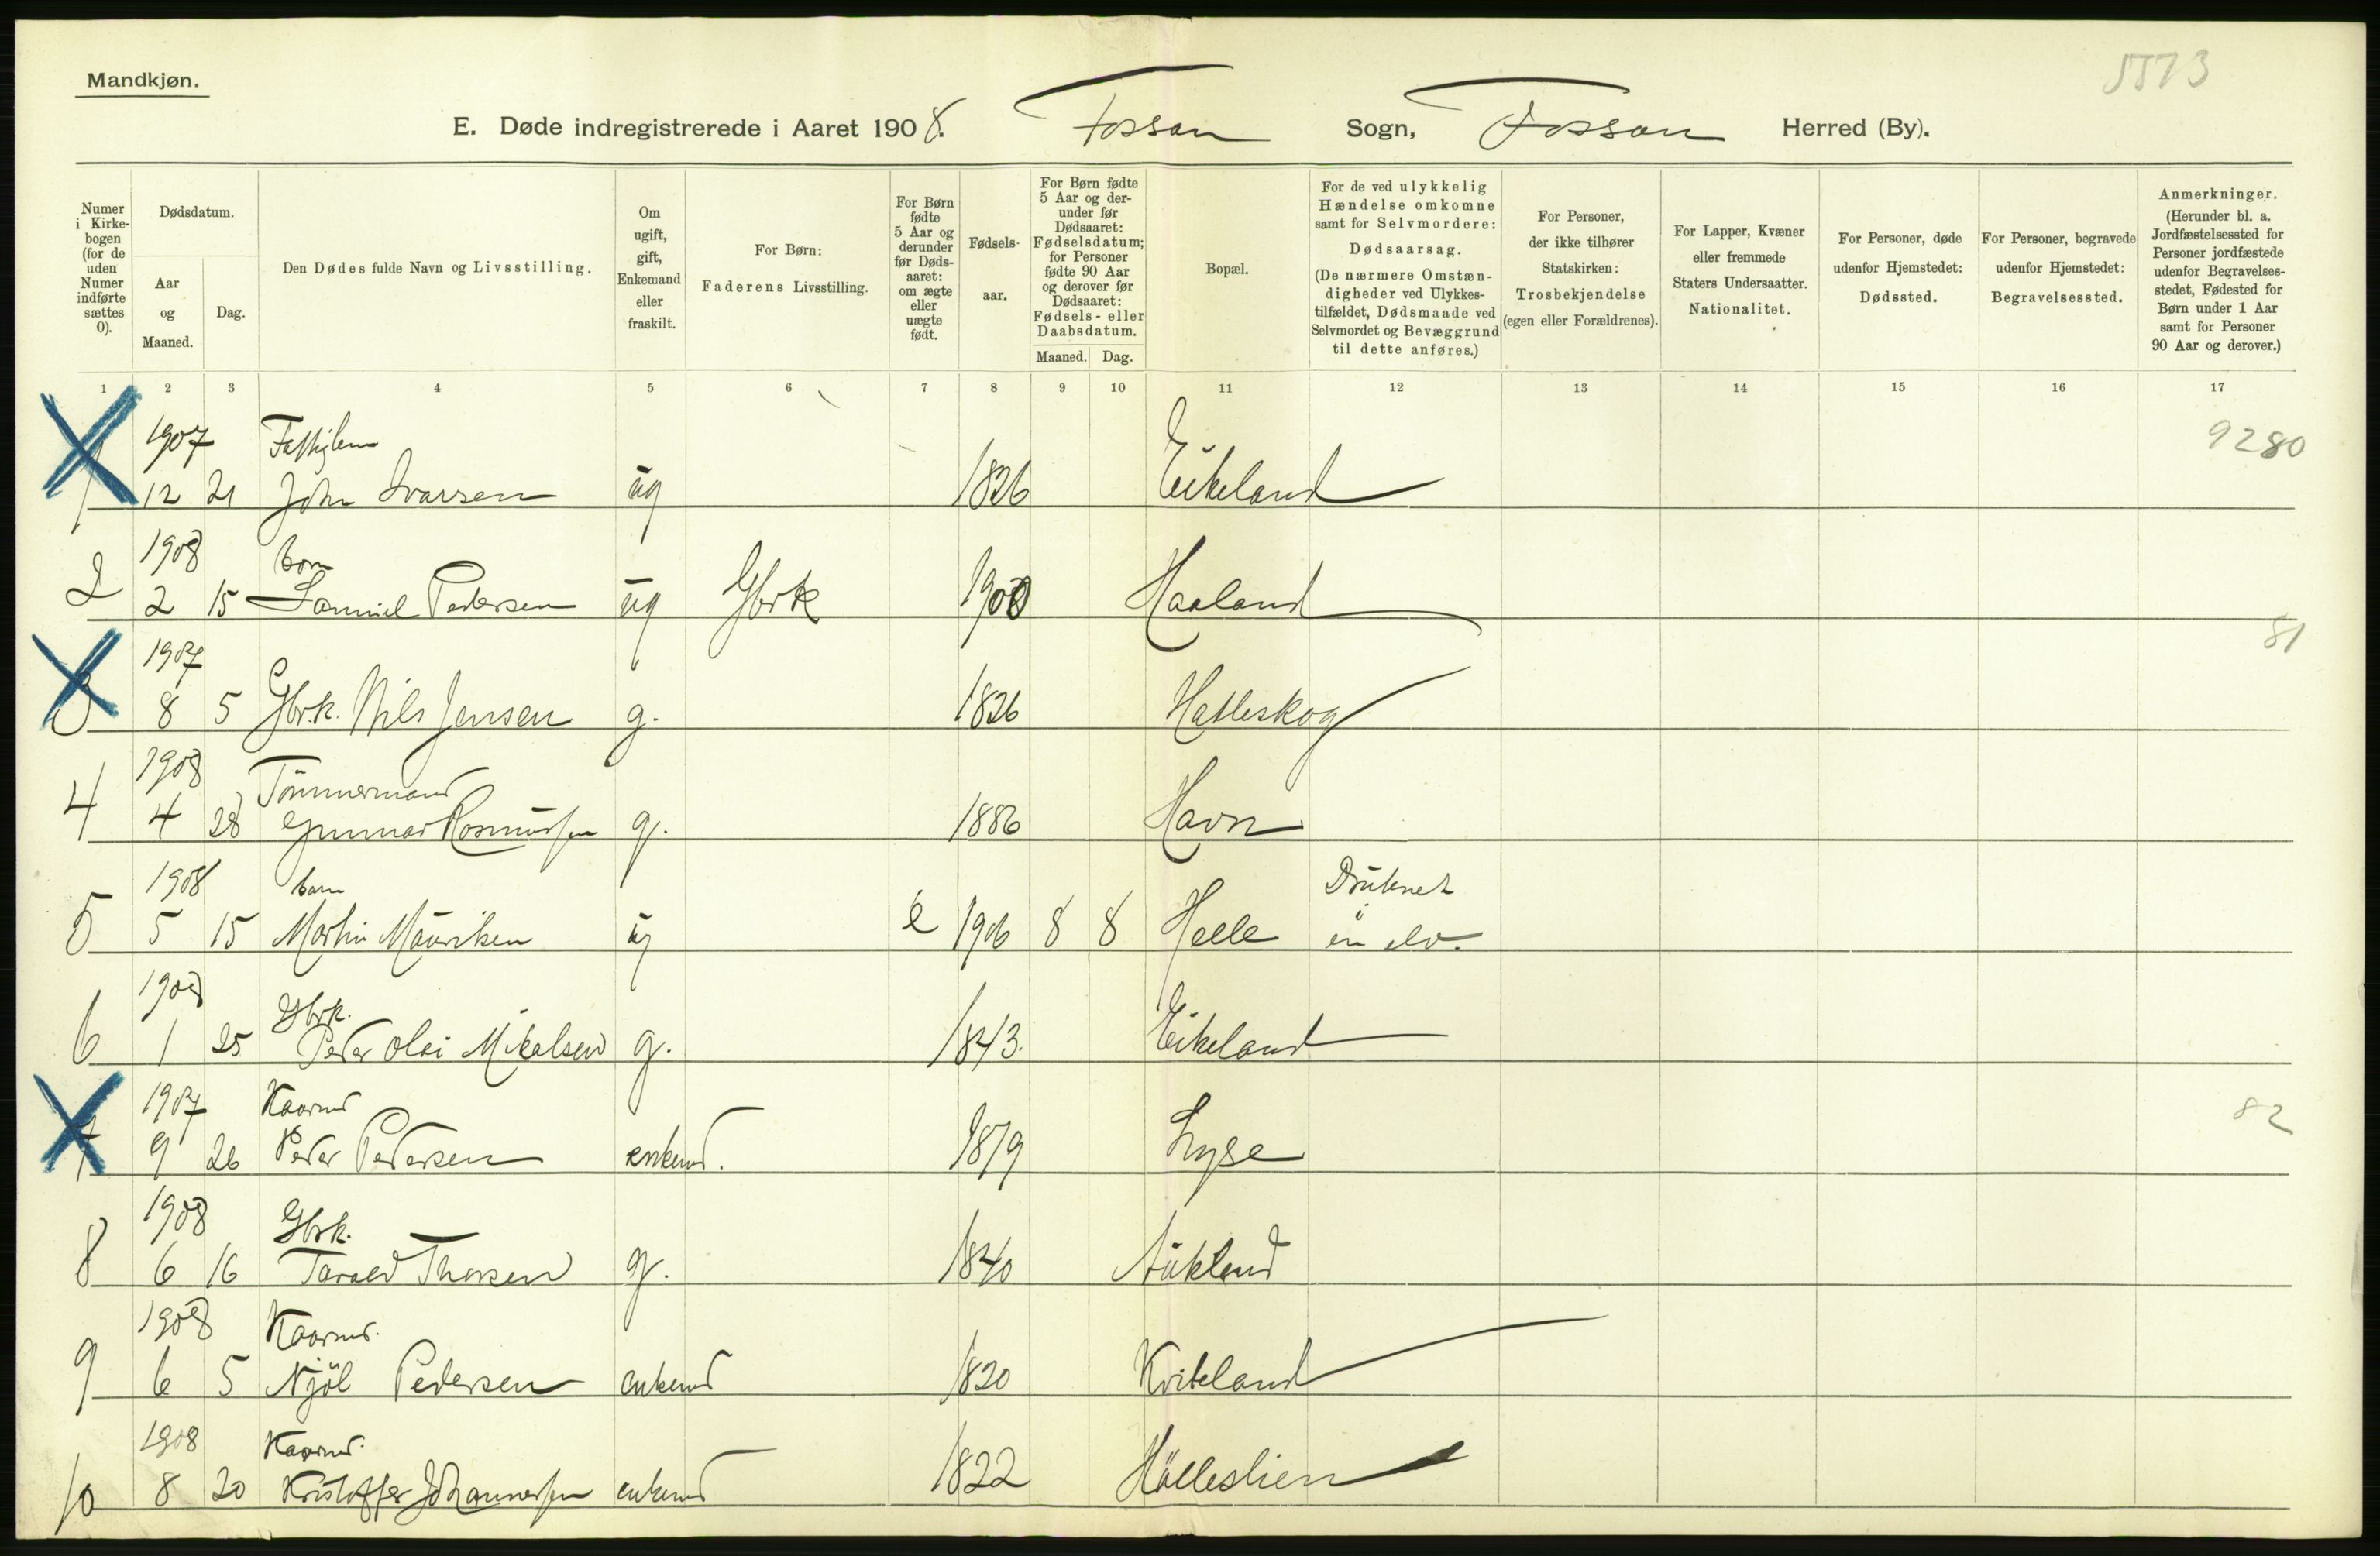 Mandkjøn.
5573
E. Døde indregistrerede i Aaret 1908. Fossan Sogn, Fossan Herred (By).
Numer i Kirkebogen (for de uden Numer indførte sættes 0).
Dødsdatum.
Aar og Maaned.
Dag.
Den Dødes fulde Navn og Livsstilling.
Om ugift, gift, Enkemand eller fraskilt.
For Børn: Faderens Livsstilling.
For Børn fødte 5 Aar og derunder før Dødsaaret: om ægte eller uægte født.
Fødselsaar.
For Børn fødte 5 Aar og derunder før Dødsaaret: Fødselsdatum; for Personer fødte 90 Aar og derover før Dødsaaret: Fødsels- eller Daabsdatum.
Maaned. Dag.
Bopæl.
For de ved ulykkelig Hændelse omkomne samt for Selvmordere: Dødsaarsag. (De nærmere Omstændigheder ved Ulykkestilfældet, Dødsmaade ved Selvmordet og Bevæggrund til dette anføres.)
For Personer, der ikke tilhører Statskirken: Trosbekjendelse (egen eller Forældrenes).
For Lapper, Kvæner eller fremmede Staters Undersaatter. Nationalitet.
For Personer, døde udenfor Hjemstedet: Dødssted.
For Personer, begravede udenfor Hjemstedet: Begravelsessted.
Anmerkninger. (Herunder bl. a. Jordfæstelsessted for Personer jordfæstede udenfor Begravelsesstedet, Fødested for Børn under 1 Aar samt for Personer 90 Aar og derover.)
1 2 3 4 5 6 7 8 9 10 11 12 13 14 15 16 17
1907 9280
1 12 21 John Ivarsen ug 1826 Eikeland
1908 barn
2 2 15 Samuel Pedersen ug Gbrk 1900 Haaland
1907 81
3 8 5 Gbrk. Nils Jensen g. 1826 Hatleskog
1908 Tömmermand
4 4 28 Gunnar Rasmussen g. 1886 Havn
1908 barn Druknet
5 5 15 Martin Mauritsen ug e 1906 8 8 Helle i en elv.
1908 Gbrk.
6 1 25 Peder Olai Mikalsen g. 1843. Eikeland
1907 Kaarmd 82
7 9 26 Peder Pedersen enkemd. 1819 Lyse
1908 Gbrk.
8 6 16 Tarald Thorsen g. 1840 Aukland
1908 Kaarmd.
9 6 5 Njöl Pedersen enkemd 1820 Kviteland
1908 Kaarmd.
10 8 20 Kristoffer Johannessen enkemd 1822 Hölleslien